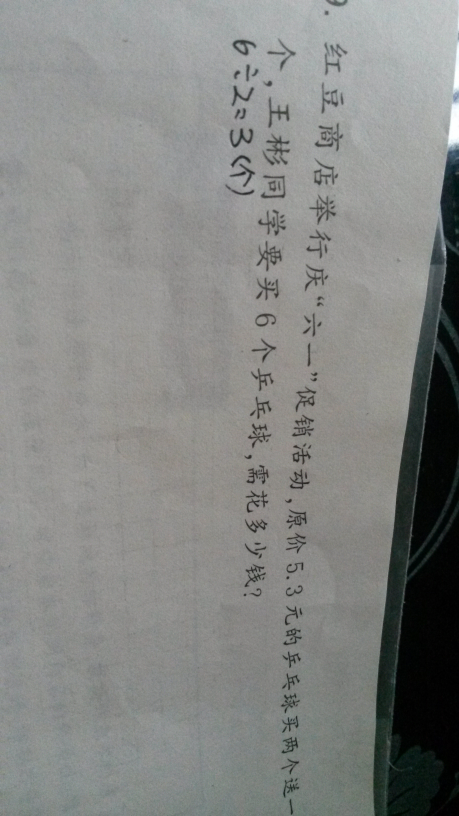 9. 红豆商店举行庆“六一”促销活动,原价5.3元的乒乓球买两个送一
个,王彬同学要买6个乒乓球,需花多少钱?
6÷2=3(个)